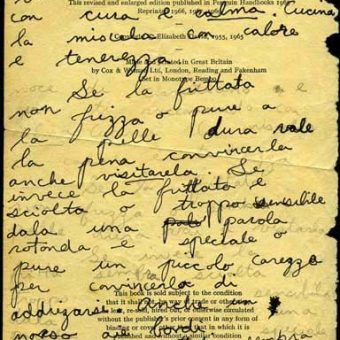 This revised and enlarged edition published in Penguin Handbooks
con cura e calma. Cucina
Reprinted 1966
la miscela con calore
Elizabeth 1955, 1965
e tenerezza
Made and printed in Great Britain
by Cox & Wyman Ltd, London, Reading and Fakenham
Set in Monotype Bembo
Se la frittata
non frizza o pure a
la pelle dura vale
la pena convincerla
anche visitarela. Se
invece la frittato e
sciolta o troppo sensibile
dala una parola
rotonda e speciale o
pure un piccolo carezza
per convincerla di
This book is sold subject to the condition
that it shall not, by way of trade or otherwise,
be lent, re-sold, hired out, or otherwise circulated
without the publisher's prior consent in any form of
binding or cover other than that in which it is
published and without a similar condition
un